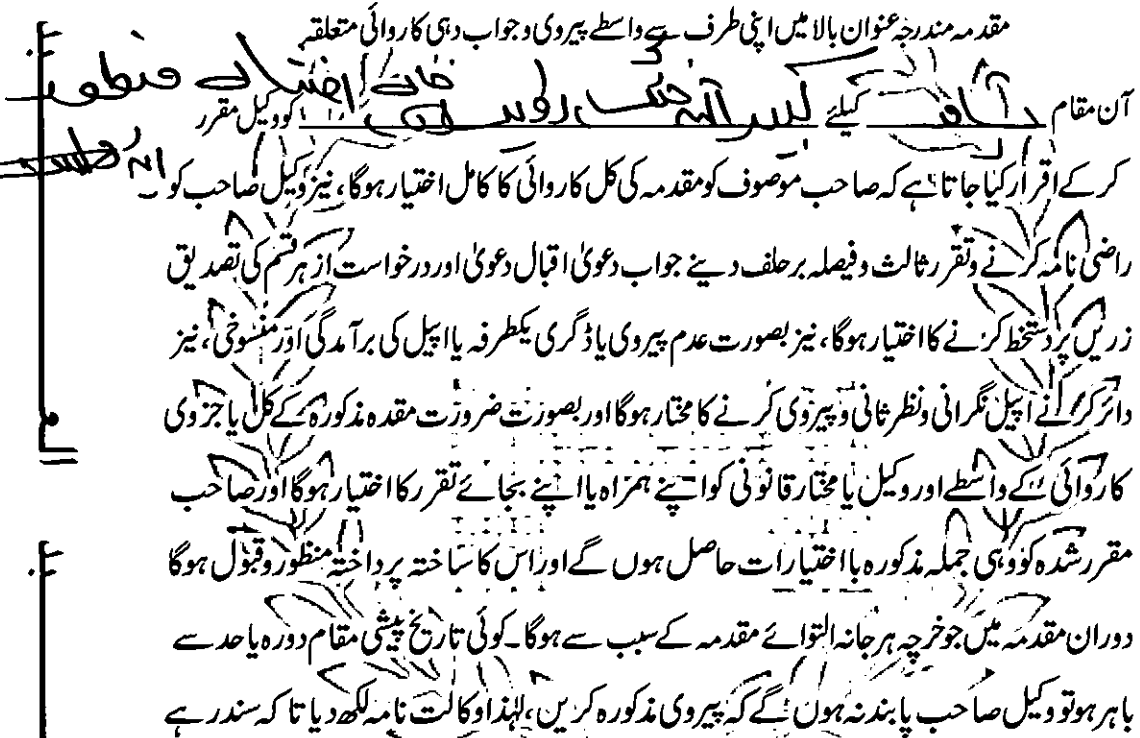 مقدمہ مندرجہ عنوان بالا میں اپنی طرف سے واسطے پیروی و جواب دہی کاروائی متعلقہ
آن مقام پشاور کیلئے کو وکیل مقرر
کر کے اقرار کیا جاتا ہے کہ صاحب موصوف کو مقدمہ کی کل کاروائی کا کامل اختیار ہوگا، نیز وکیل صاحب کو
راضی نامہ کرنے وتقرر ثالث وفیصلہ برحلف دینے جواب دعویٰ اقبال دعویٰ اور درخواست از ہر قسم کی تصدیق
زریں پر دستخط کرنے کا اختیار ہوگا، نیز بصورت عدم پیروی یا ڈگری یکطرفہ یا اپیل کی برآمدگی اور منسوخی، نیز
دائر کرنے اپیل نگرانی ونظر ثانی و پیروی کرنے کا مختار ہوگا اور بصورت ضرورت مقدہ مذکورہ کے کل یا جزوی
کاروائی کے واسطے اور وکیل یا مختار قانونی کو اپنے ہمراہ یا اپنے بجائے تقرر کا اختیار ہوگا اور صاحب
مقرر شدہ کو وہی جملہ مذکورہ با اختیارات حاصل ہوں گے اور اس کا ساختہ پرداختہ منظور وقبول ہوگا
دوران مقدمہ میں جو خرچہ ہرجانہ التوائے مقدمہ کے سبب سے ہوگا۔ کوئی تاریخ پیشی مقام دورہ یا حد سے
باہر ہو تو وکیل صاحب پابند نہ ہوں گے کہ پیروی مذکورہ کریں، لہٰذا وکالت نامہ لکھ دیا تا کہ سند رہے